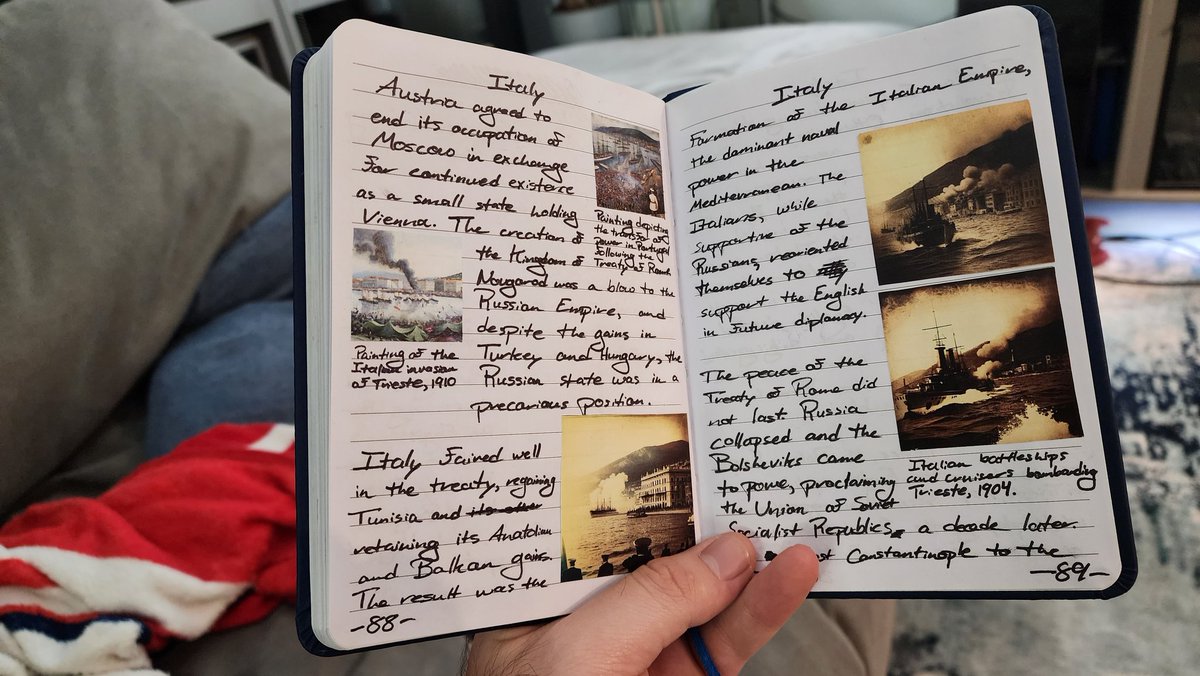 Italy
Austria agreed to
end its occupation of
Moscow in exchange
for continued existence
as a small state holding
Vienna. The creation of
the Kingdom of
Novgorod was a blow to the
Russian Empire, and
despite the gains in
Turkey and Hungary, the
Russian state was in a
precarious position.
Painting depicting
the transfer of
power in Portugal
following the
Treaty of Rome
Painting of the
Italian invasion
of Trieste, 1910
Italy faired well
in the treaty, regaining
Tunisia and its other
retaining its Anatolian
and Balkan gains.
The result was the
-88-
Italy
Formation of the Italian Empire,
the dominant naval
power in the
Mediterranean. The
Italians, while
supportive of the
Russians, reoriented
themselves to
support the English
in future diplomacy.
The peace of the
Treaty of Rome did
not last. Russia
collapsed and the
Bolsheviks came
to powe, proclaiming
the Union of Soviet
Socialist Republics, a decade later.
Constantinople to the
Italian battleships
and cruisers bombarding
Trieste, 1904.
-89-